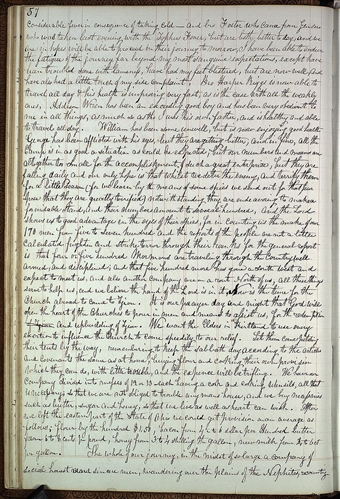 57
considerable fever in consequence of taking cold — and bro Foster who came from Genesee
who was taken last evening with the Typhus Fever, but are both better to day, and we
are in hopes will be able to proceed in their journey to-morrow. I have been able to endure
the fatigue of the journey far beyond my most sanguine expectations, except have
been troubled some with lameness, have had my feet blistered, but are now well, and
have also had a little touch of my side complaint. Bro Charles Riggs is now able to
travel all day & his health is improving very fast, as is the case with all the weakly
ones. Addison Wren has been an exceeding good boy and has been very obedient to
me in all things, as much so as tho I was his own father, and is healthy and able
to travel all day. William has been some unwell, but is now enjoying good health.
George has been afflicted with his eyes, but they are getting better, and in fine, all the
Camp is in as good a situation as could be expected; but our numbers and means are
altogether too small for the accomplishment of such a great enterprise, but they are
falling daily and our only hope is that whilst we deter the enemy, and terrify them
for a little season (for we learn by the means of some spies we send out for that pur
pose that they are greatly terrified) notwithstanding they are endeavoring to make a
formidable stand, and their numbers amount to several hundred, and the Lord
shows us to good advantage in the eyes of their spies, for in counting us the make of our
170 men from five to seven hundred and the reports of the people are not a little
calculated to frighten and strike terror through their hearts for the general report
is that four or five hundred Mormons are traveling through the Country well
armed, and disciplined; and that five hundred more has gone a south west and
expect to meet us, and also another company are on a rout North of us, all these things
serve to help us, and we believe the hand of the Lord is in it. Now is the time for the
Church abroad to come to Zion. It is our prayer day and night that God will
open the heart of the Churches to pour in men and means to assist us, for the redemption
and upbuilding of Zion. We want the Elders in Kirtland to use every
exertion to influence the Church to come speedily to our relief. Let them come pitching
their tents by the way, remembering to keep the sabbath day according to the articles
and covenants the same as at home, buying flour and cooking their own provision
(which they can do, with little trouble,) and the expence will be trifling. We have our
Company divided into messes of 12 or 13 each having a cook and cooking utensils, all that
is necessary so that we are not obliged to trouble any mans house, and we buy our provision
such as butter, sugar and honey, so that we live as well as heart can wish. After
we left the eastern part of the State of Ohio we could get provision on an average as
follows; flour by the hundred $1,50, bacon from 4½ to 6 dollars per Hundred butter
from 6 to 8 cts pr pound, honey from 3 to 4 shilling the gallon, new milk from 4 to 6 cts
per gallon. The whole of our journey, in the midst of so large a company of
social honest and sincere men, wandering over the plains of the Nephites, recounting